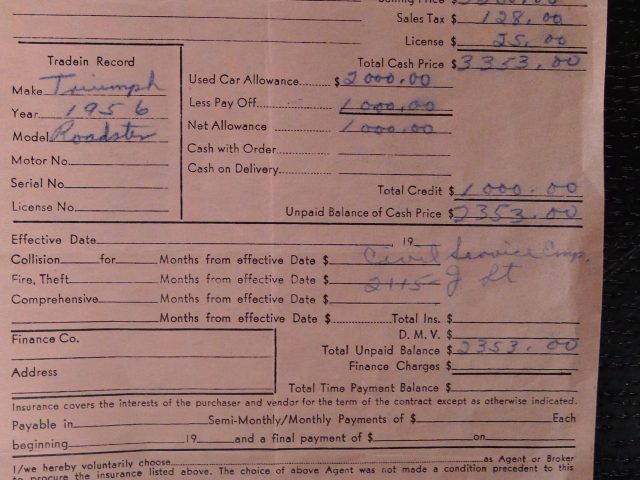 Selling Price $ 3200.00
Sales Tax $ 128.00
License $ 25.00
Total Cash Price $ 3353.00
Tradein Record
Make Triumph
Year 1956
Model Roadster
Motor No.
Serial No.
License No.
Used Car Allowance $ 2000.00
Less Pay Off 1000.00
Net Allowance 1000.00
Cash with Order
Cash on Delivery
Total Credit $ 1000.00
Unpaid Balance of Cash Price $ 2353.00
Effective Date , 19
Collision for Months from effective Date $ Civil Service Emp.
Fire, Theft Months from effective Date $ 2115 J St
Comprehensive Months from effective Date $
Months from effective Date $ Total Ins. $
D. M. V. $
Finance Co.
Total Unpaid Balance $ 2353.00
Finance Charges $
Address
Total Time Payment Balance $
Insurance covers the interests of the purchaser and vendor for the term of the contract except as otherwise indicated.
Payable in Semi-Monthly/Monthly Payments of $ Each
beginning 19 and a final payment of $ on
I/we hereby voluntarily choose as Agent or Broker
to procure the insurance listed above. The choice of above Agent was not made a condition precedent to this